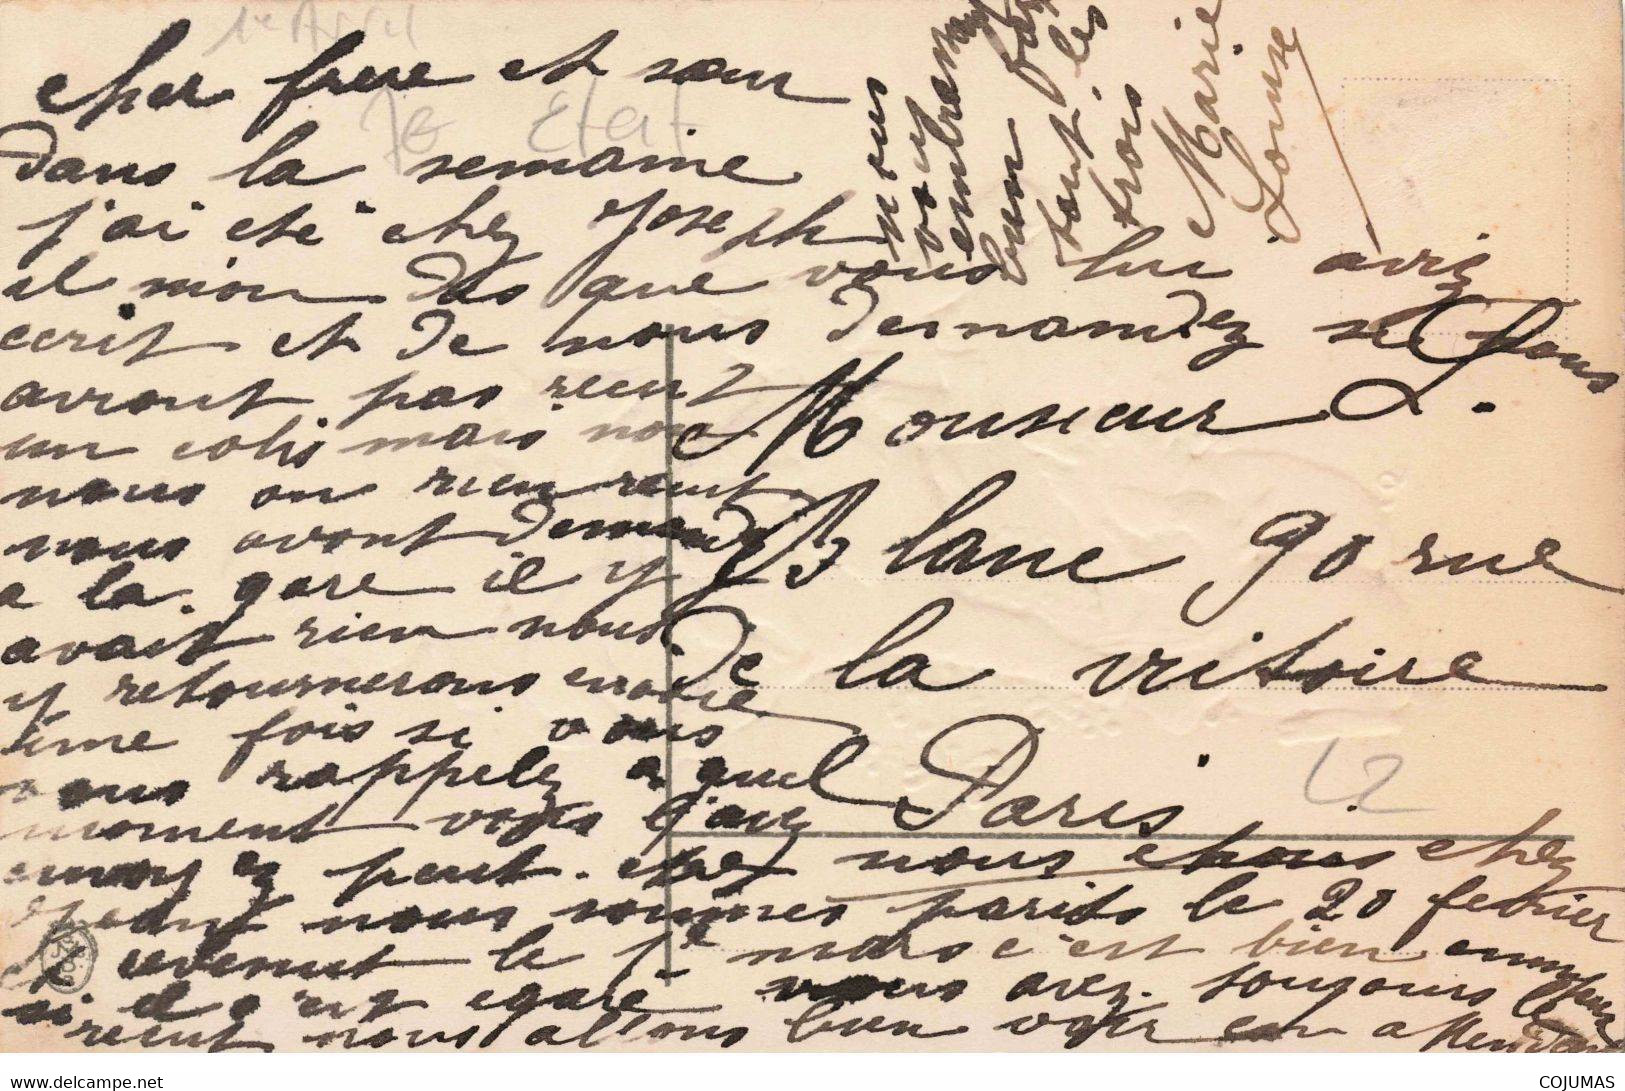 1e Avril
Je Etat
cher frere et sœur
dans la semaine
j'ai eté chez Joseph
il mon dis que vous lui aviz
ecrit et de nous demandez si nous
avront pas recut
un colis mais non
nous on rien recut
nous avont demandez
a la gare il y
avait rien nous
y retournerons encore
une fois si vous
vous rappelez a quel
moment vous l'avez
envoyez peut. etre chez
nous sommes partis le 20 fevrier
et revenut le 1e mars c'est bien ennuyeux
si il c'est egaré vous avez toujours le
recut nous allons bien voir en attendant
nous
vous
embrassons
bien
tout. les
trois
Marie
Louise
Monsieur L.
Blanc 90 rue
de la vritoire
Paris
12
COJUMAS
https://www.delcampe.net